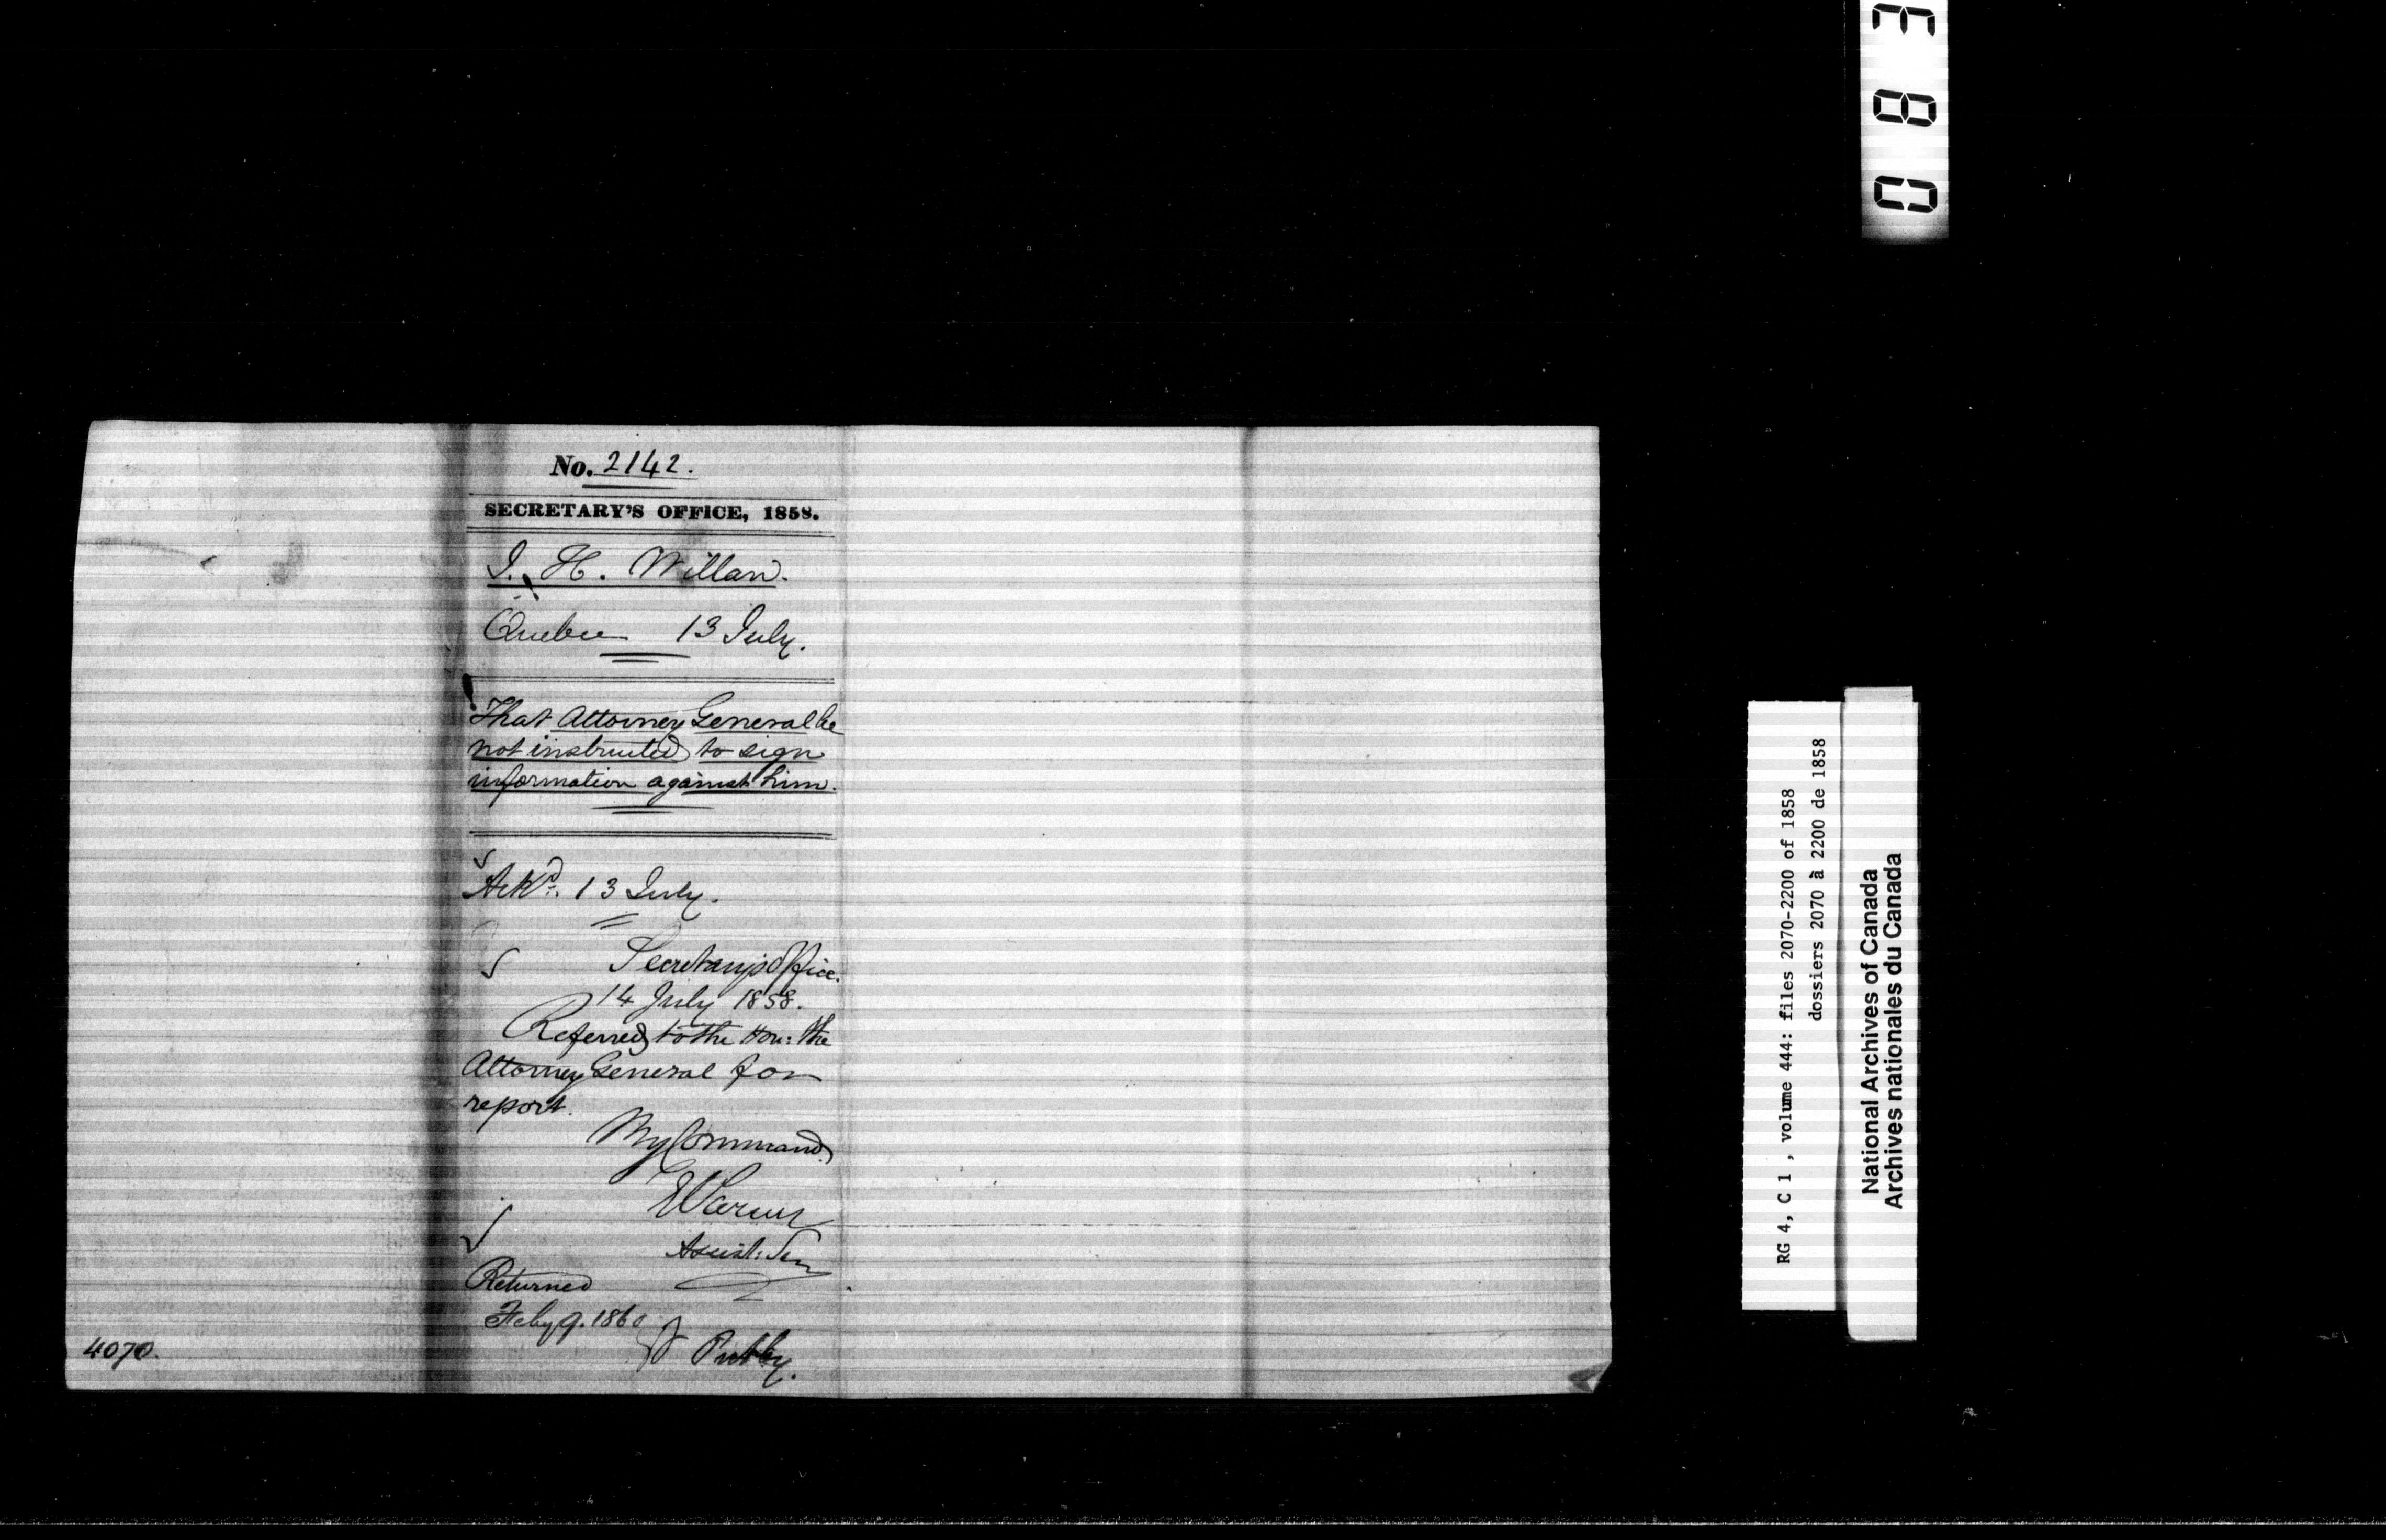 No. 2142.
SECRETARY'S OFFICE, 1858.
J. H. Willan.
Quebec 13 July.
That Attorney General be
not instructed to sign
information against him.
Ackd. 13 July.
Secretary's Office.
14 July 1858.
Referred to the Hon: the
Attorney General for
report.
By Command.
Assist: Sec
Returned
Feby 9. 1860
4070.
083
RG 4, C 1 , volume 444: files 2070-2200 of 1858
dossiers 2070 à 2200 de 1858
National Archives of Canada
Archives nationales du Canada